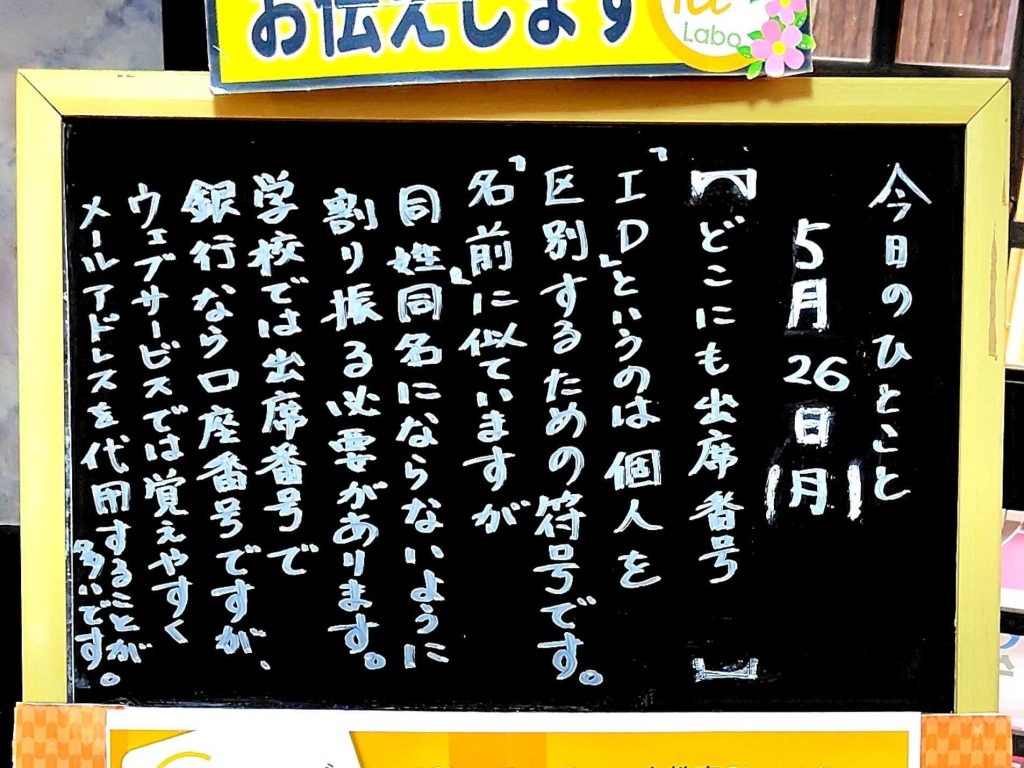 お伝えします
Labo
今日のひとこと
5月26日(月)
【どこにも出席番号】
「ID」というのは個人を
区別するための符号です。
「名前」に似ていますが
同姓同名にならないように
割り振る必要があります。
学校では出席番号で
銀行なら口座番号ですが、
ウェブサービスでは覚えやすく
メールアドレスを代用することが
多いです。